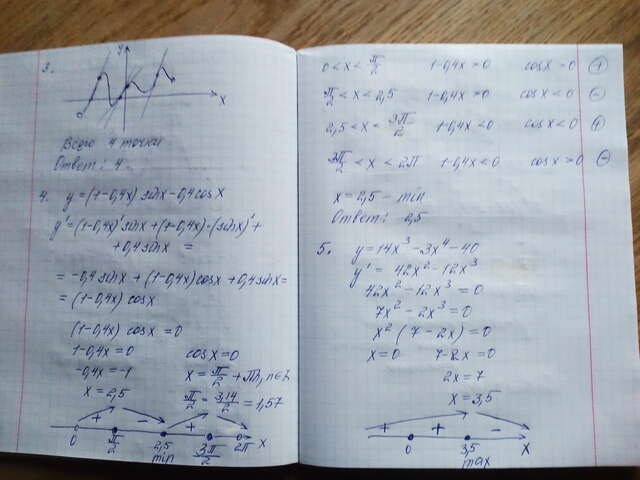 3.
y
x
Всего 4 точки
Ответ: 4.
4. y=(1-0,4x) sinx-0,4cosx
y'=(1-0,4x)'sinx+(1-0,4x)·(sinx)'+
+0,4sinx =
= -0,4sinx + (1-0,4x)cosx +0,4sinx=
= (1-0,4x) cosx
(1-0,4x) cosx =0
1-0,4x=0 cosx=0
-0,4x=-1 x= π/2 +πn, n∈Z
x=2,5 π/2 = 3,14/2 =1,57
+ - + -
0 π/2 2,5 3π/2 2π x
min
0<x<π/2 1-0,4x>0 cosx>0 +
π/2<x<2,5 1-0,4x>0 cosx<0 -
2,5<x<3π/2 1-0,4x<0 cosx<0 +
3π/2<x<2π 1-0,4x<0 cosx>0 -
x=2,5 - min
Ответ: 2,5
5. y=14x³-3x⁴-40
y'= 42x²-12x³
42x²-12x³=0
7x²-2x³=0
x²(7-2x)=0
x=0 7-2x=0
2x=7
x=3,5
+ + -
0 3,5 x
max